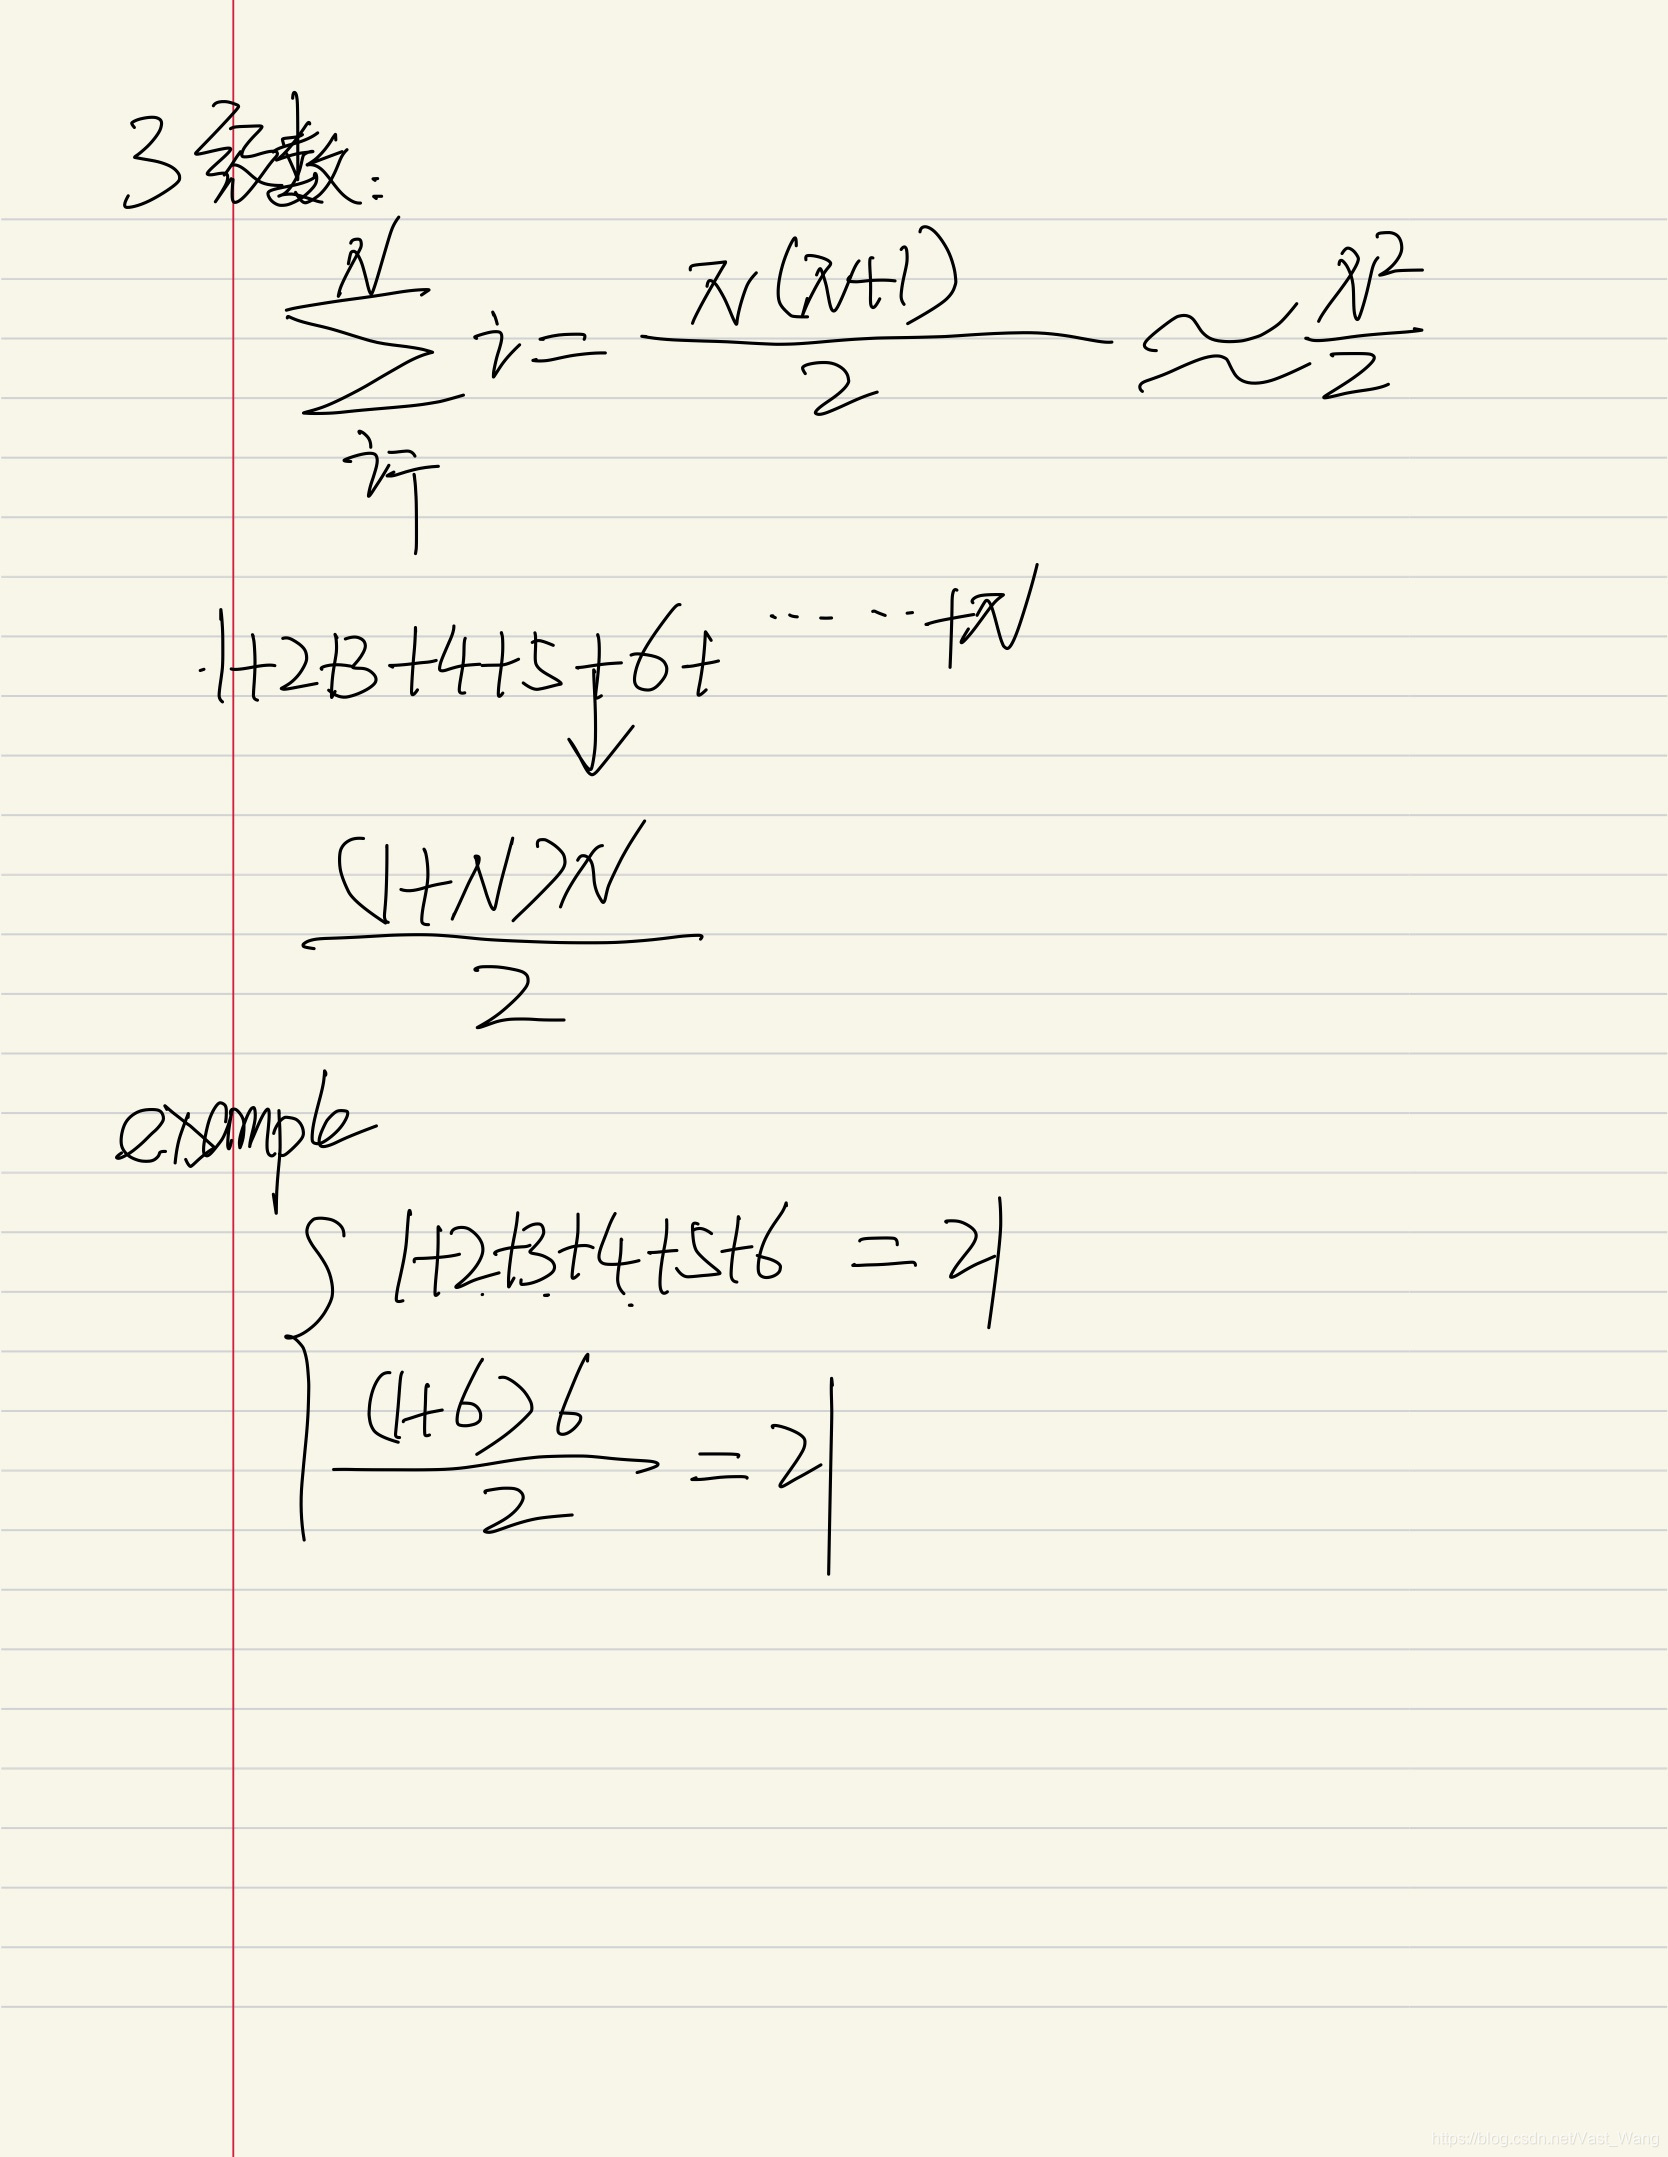 3 级数:
\sum_{i=1}^{N} i = \frac{N(N+1)}{2} ≈ \frac{N^2}{2}
1+2+3+4+5+6+ ...... +N
\frac{(1+N)N}{2}
example
1+2+3+4+5+6 = 21
\frac{(1+6)6}{2} = 21
https://blog.csdn.net/Vast_Wang